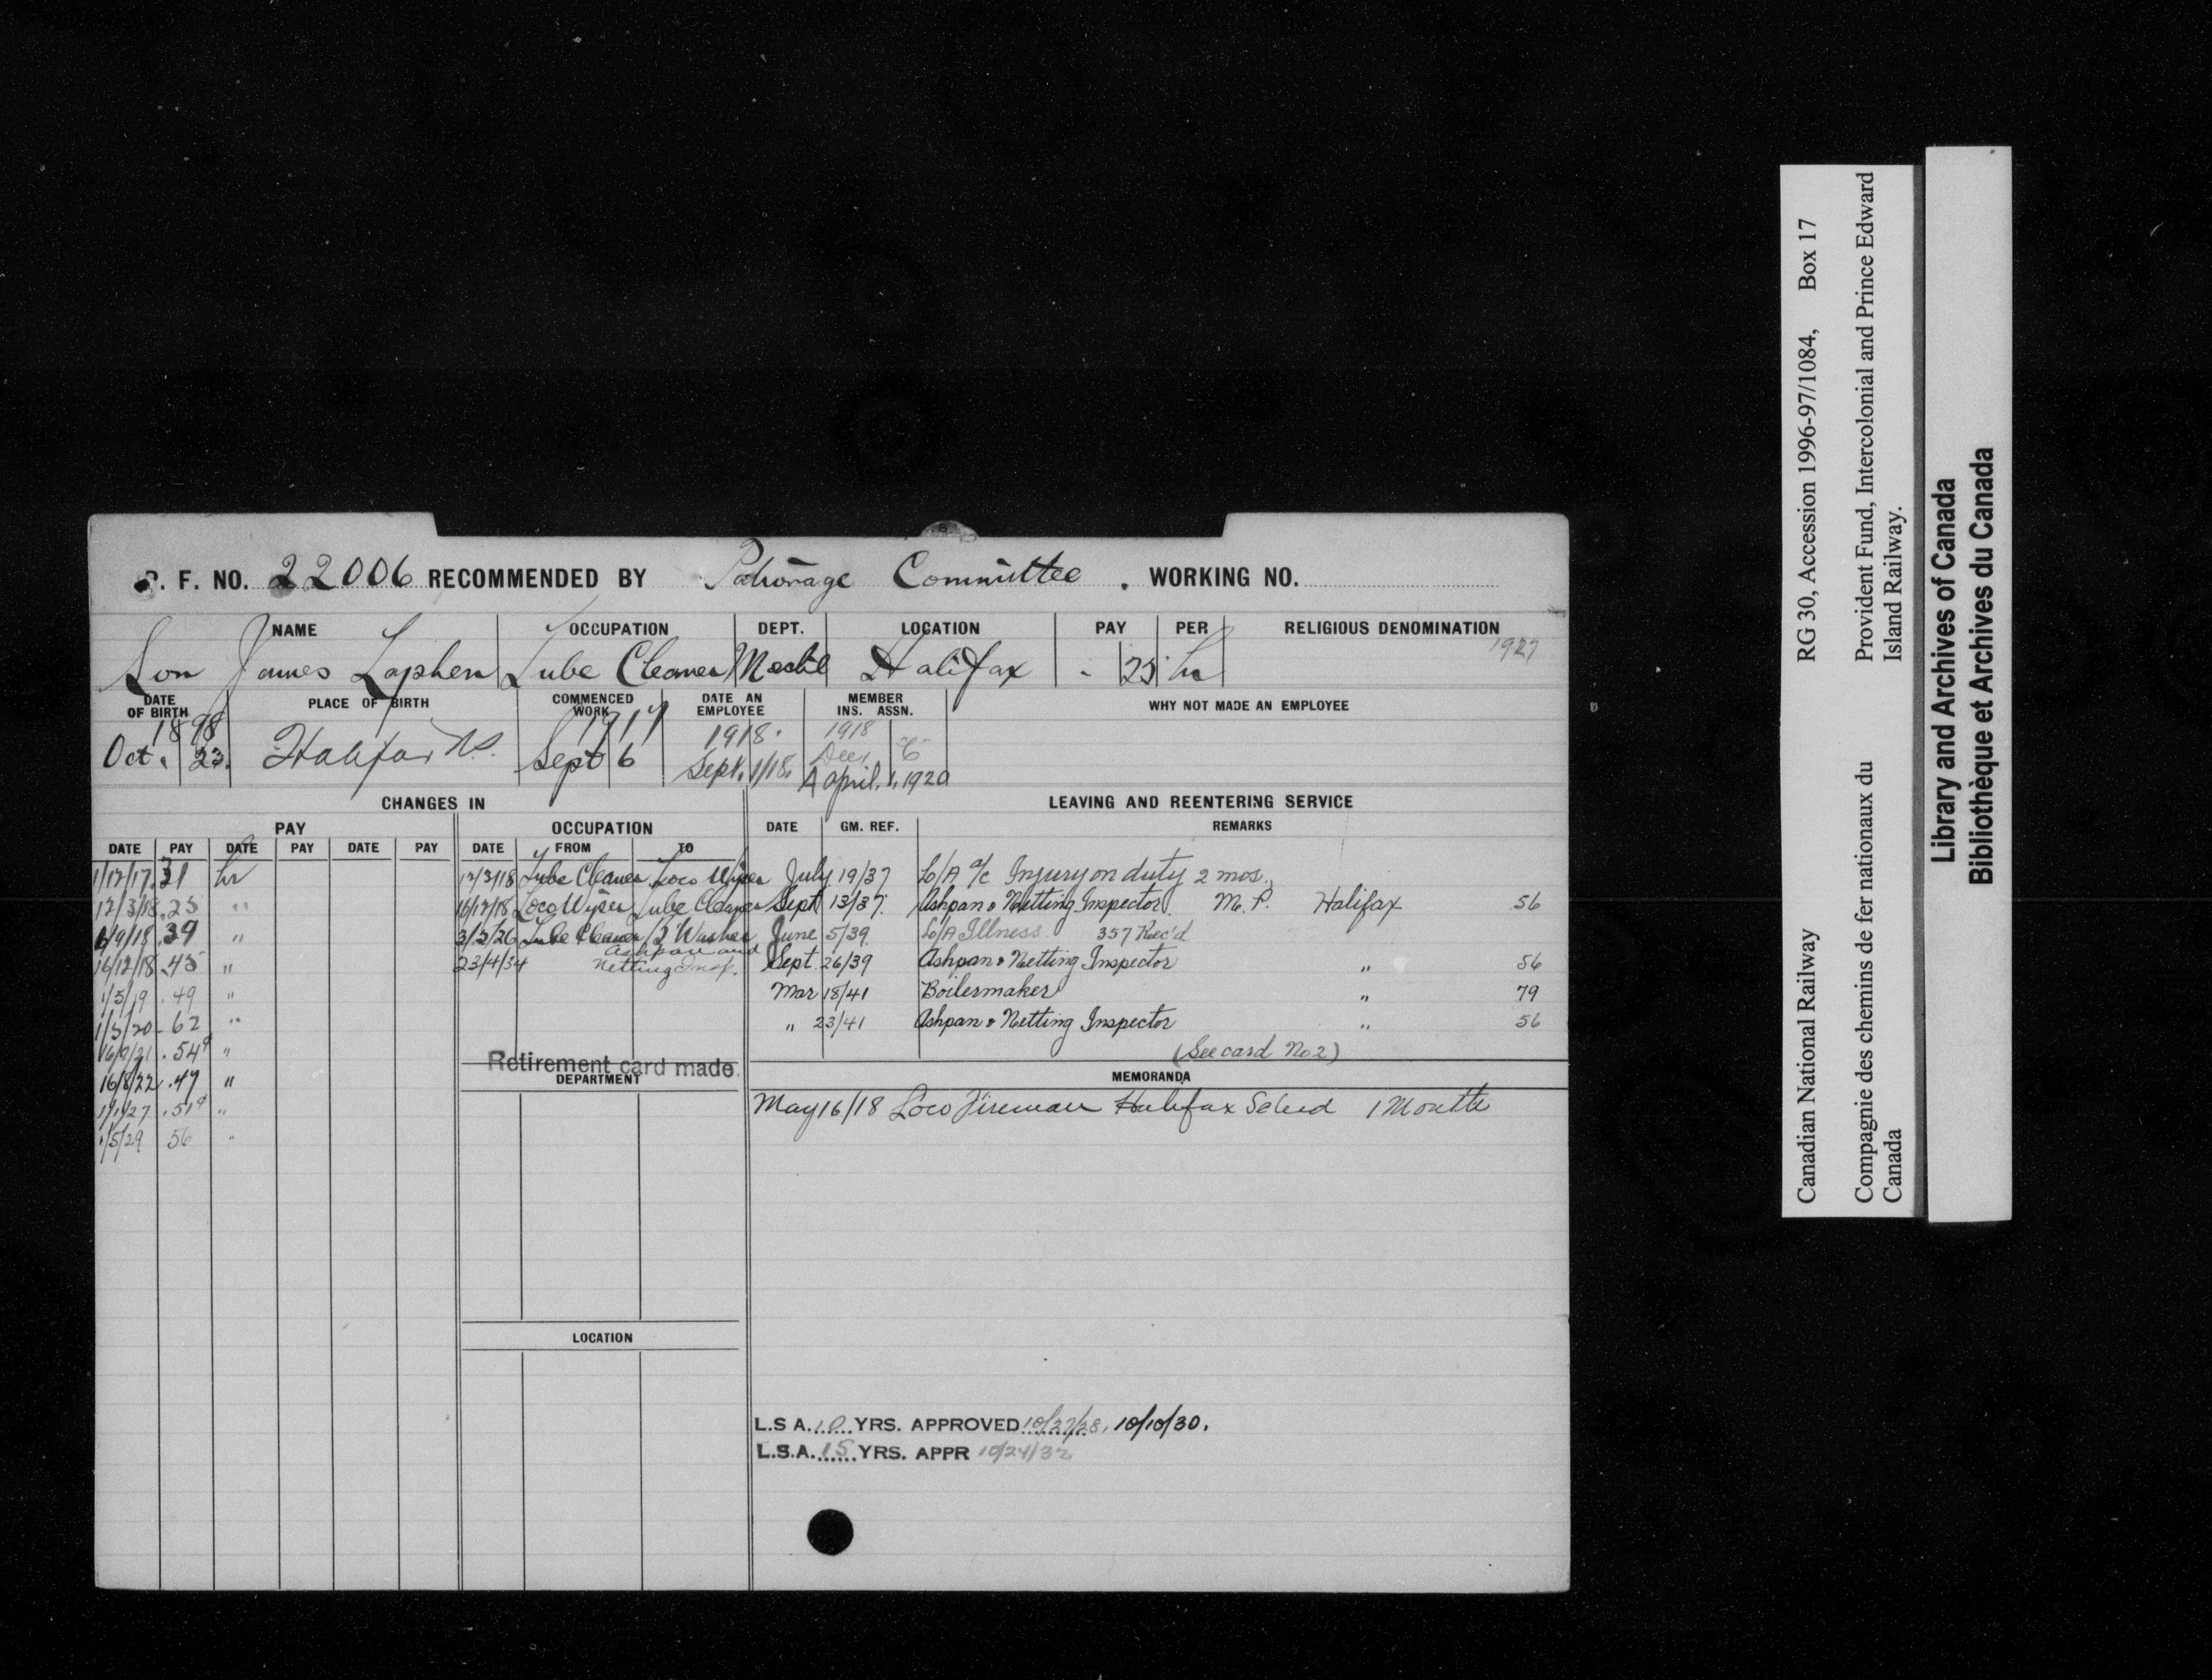 P. F. NO. 22006 RECOMMENDED BY Patronage Committee . WORKING NO.
NAME OCCUPATION DEPT. LOCATION PAY PER RELIGIOUS DENOMINATION
1927
James Laphen Tube Cleaner Mechl Halifax - 25 hr
DATE OF BIRTH PLACE OF BIRTH COMMENCED WORK DATE AN EMPLOYEE MEMBER INS. ASSN. WHY NOT MADE AN EMPLOYEE
1898 1917 1918. 1918
Oct. 23. Halifax N.S. Sept 6 Sept. 1/18. Dec. 1 "C"
A April. 1, 1920
CHANGES IN
LEAVING AND REENTERING SERVICE
PAY OCCUPATION DATE GM. REF. REMARKS
DATE PAY DATE PAY DATE PAY DATE FROM TO
1/12/17 .31 hr 12/3/18 Tube Cleaner Loco Wiper July 19/37 L/A a/c Injury on duty 2 mos.
12/3/18 .25 " 16/12/18 Loco Wiper Tube Cleaner Sept 13/37. Ashpan & Netting Inspector. M. P. Halifax 56
6/9/18 .39 " 3/2/26 Tube Cleaner Washer June 5/39 L/A Illness 357 Rec'd
16/12/18 .45 " 23/4/34 Ashpan and Netting Insp. Sept 26/39 Ashpan & Netting Inspector " 56
1/5/19 .49 " Mar 18/41 Boilermaker " 79
1/5/20 .62 " " 23/41 Ashpan & Netting Inspector " 56
.54 " (See card No 2)
Retirement card made.
DEPARTMENT
MEMORANDA
16/8/22 .47 "
May 16/18 Loco Fireman Halifax Selend 1 Month
1/1/27 .51 "
1/5/29 56 "
LOCATION
L.S A. 10 YRS. APPROVED 10/27/28, 10/10/30.
L.S.A. 15 YRS. APPR 10/24/32
Canadian National Railway RG 30, Accession 1996-97/1084, Box 17
Compagnie des chemins de fer nationaux du Canada
Provident Fund, Intercolonial and Prince Edward Island Railway.
Library and Archives of Canada
Bibliothèque et Archives du Canada